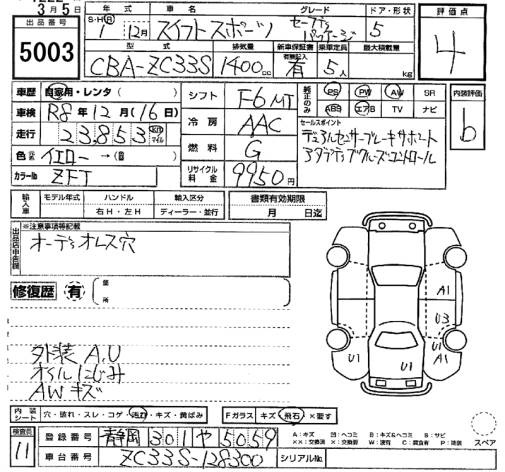 3月5日
出品番号
5003
年式 車名 グレード ドア・形状
S・H・R 1年 12月 スイフトスポーツ セーフティパッケージ 5
型式 排気量 新車保証書 乗車定員 最大積載量
CBA-ZC33S 1400cc 有 5人 kg
評価点
4
車歴 自家用・レンタ( )
車検 R8年12月(16日)
走行 23,853 km マイル
色 イエロー→(B)
カラーNo ZFT
シフト F6MT
冷房 AAC
燃料 G
リサイクル料金 9950円
純正のみ
PS PW AW SR
ABS エアB TV ナビ
内装評価
b
セールスポイント
デュアルセンサーブレーキサポート
アダプティブクルーズコントロール
輸入車 モデル年式 ハンドル 輸入区分 書類有効期限
右H・左H ディーラー・並行 月 日迄
出品店申告欄
※注意事項等記載
オーディオレス穴
修復歴 有 箇所
外装 A.U
オイルにじみ
AWキズ
A1
U3
U1
U1
U1
A1
内装シート 穴・破れ・スレ・コゲ・汚れ・キズ・黄ばみ
Fガラス キズ・飛石・×要す
検査員
11
登録番号 静岡 301 や 5059
車台番号 ZC33S-128300
シリアルNo.
A：キズ 凹：ヘコミ B：キズ&ヘコミ S：サビ
××：交換済 ×：要交換 W：波有 C：腐食有 P：塗装 スペア